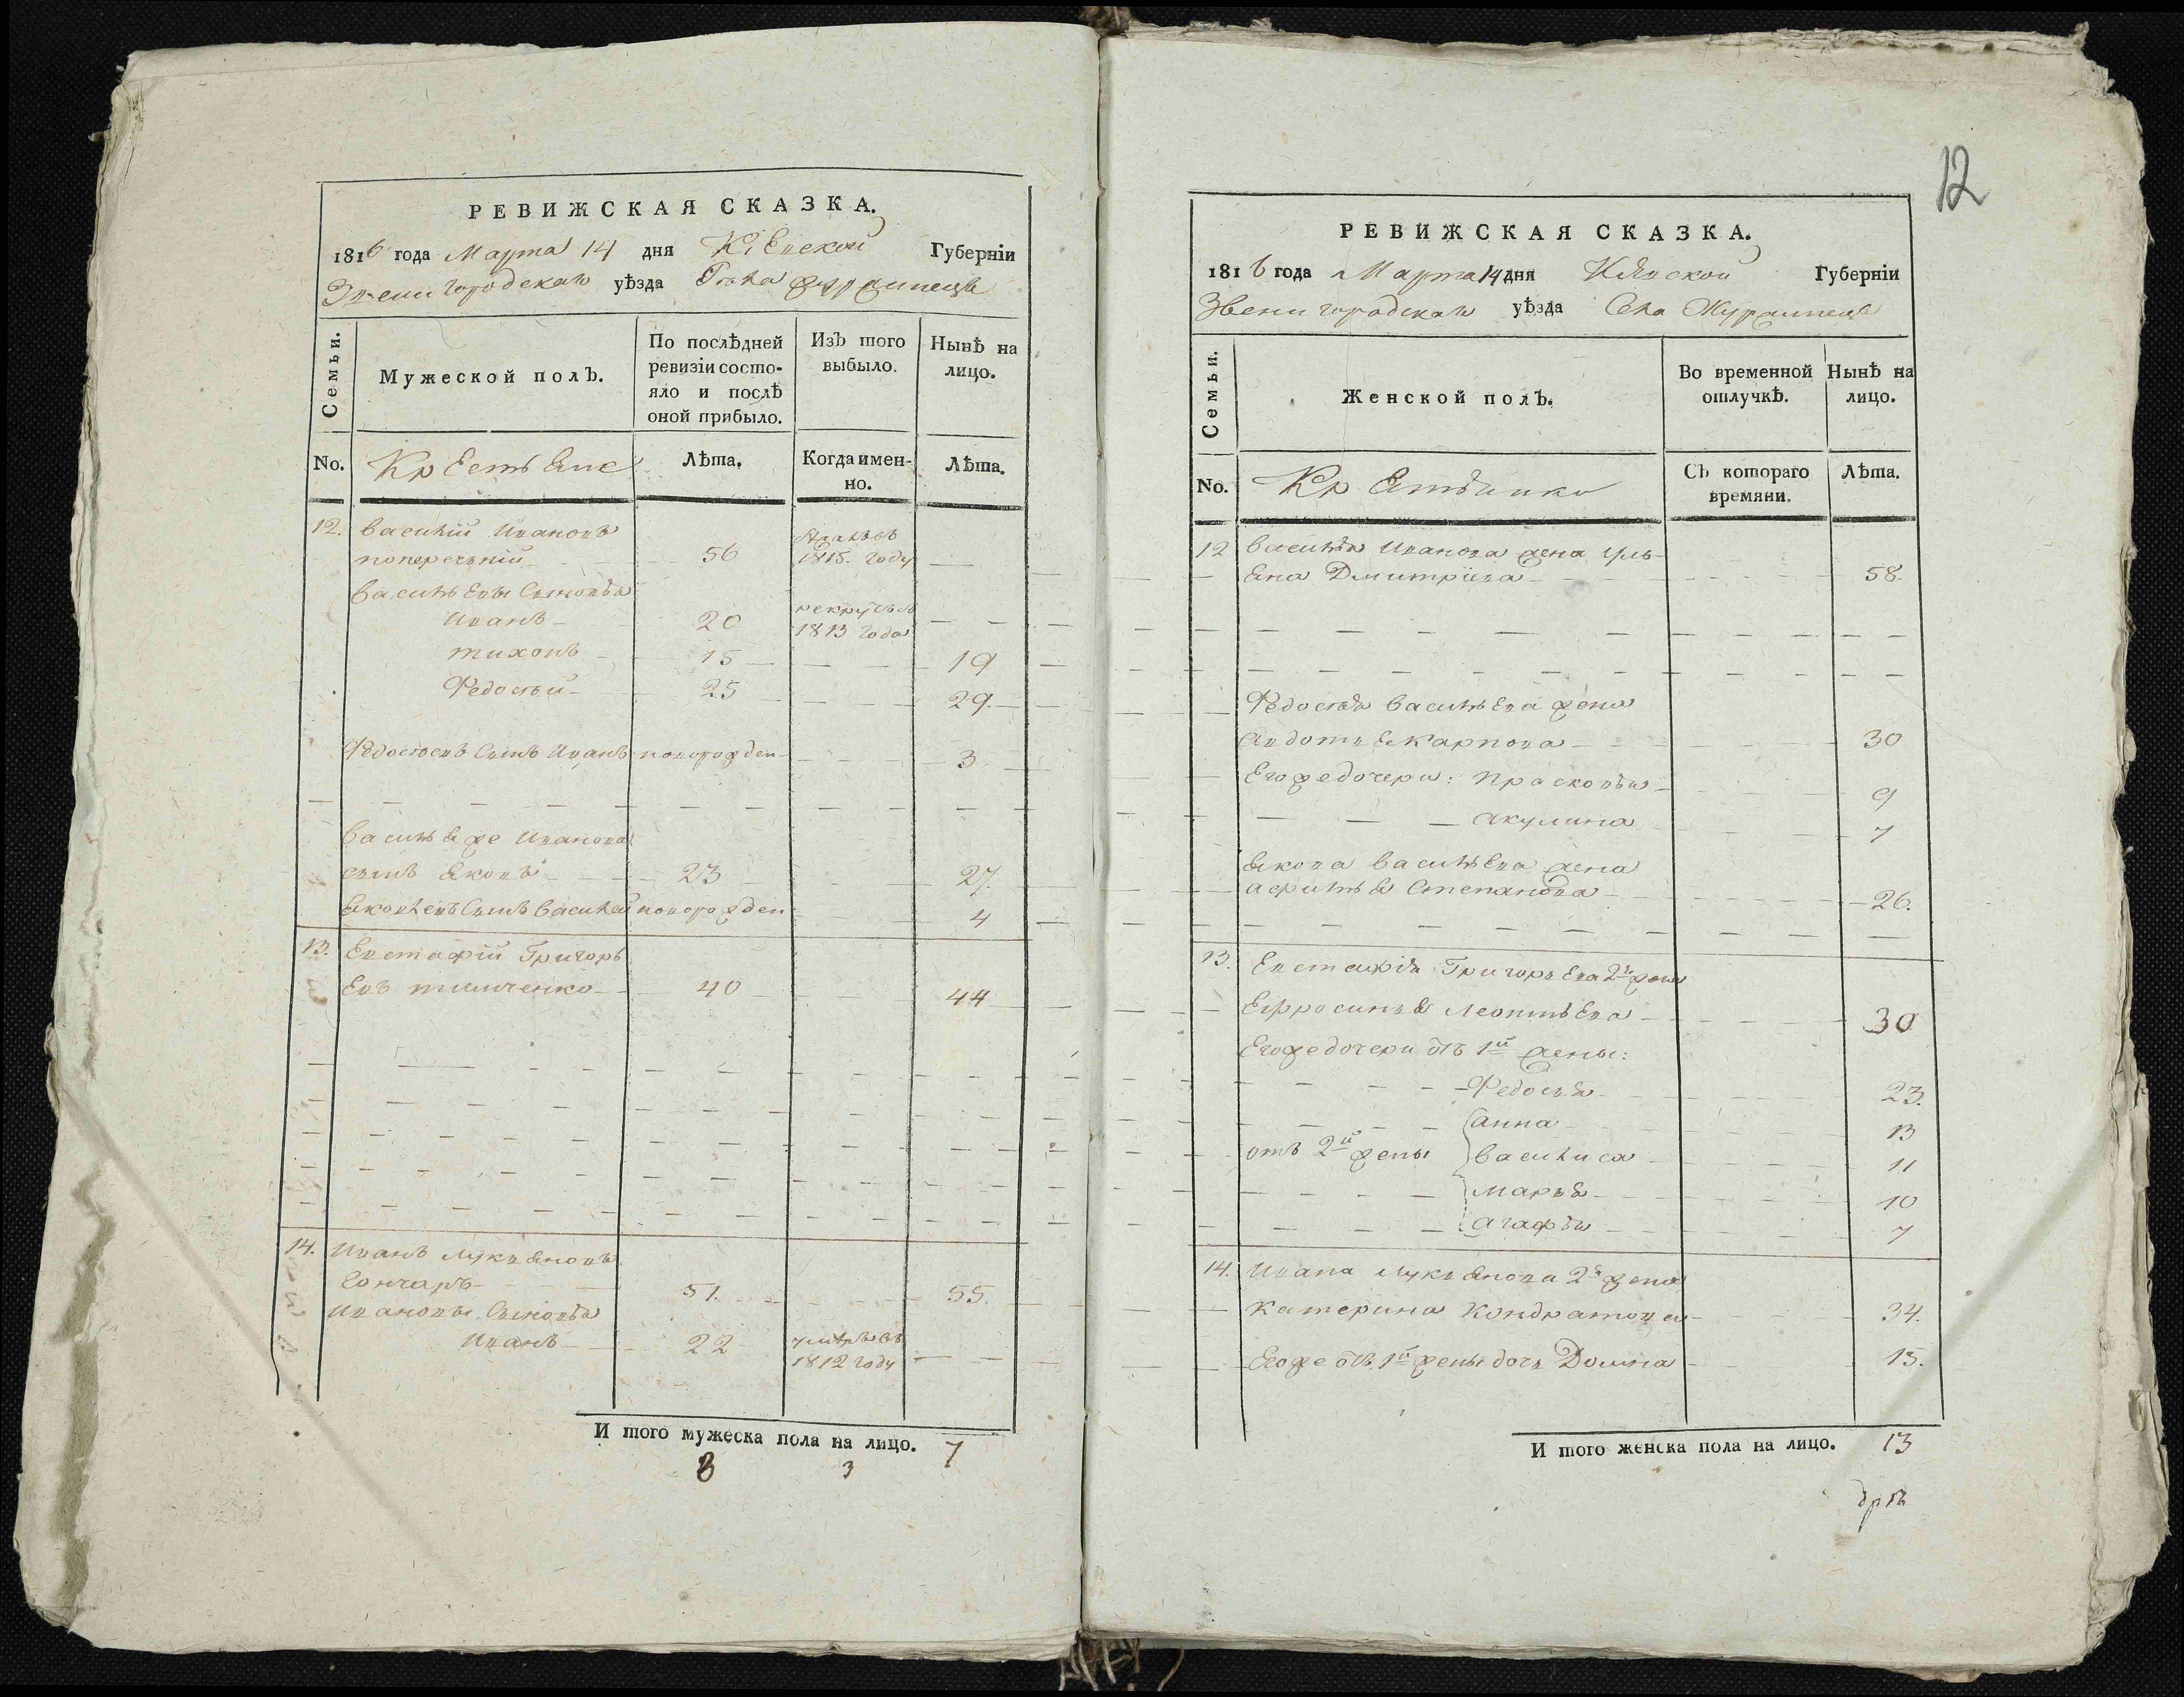 РЕВИЖСКАЯ СКАЗКА.
1816 года Марта 14 дня Кіевской Губерніи
Звенигородскаго уѣзда Села Журжинецъ
Семьи.
Мужеской полъ.
По послѣдней ревизіи состо-
яло и послѣ
оной прибыло.
Изъ того
выбыло.
Нынѣ на
лицо.
No.
Крестьяне
Лѣта.
Когда имен-
но.
Лѣта.
12. Василій Ивановъ
поперечній 56 1815. году
Васильевы Сыновья
Иванъ 20 1813 года
тихонъ 15 19
Федосѣй 25 29
Федосѣевъ Сынъ Иванъ новорожден 3
Василья же Иванова
сынъ Яковъ 23 27.
Яковлевъ Сынъ Василей новорожден 4
13. Евстафій Григорь
евъ тимченко 40 44
14. Иванъ Лукьяновъ
Гончаръ 51. 55.
Ивановы Сыновья
Иванъ 22 умре въ 1812 году
И того мужеска пола на лицо. 7
8 3
12
РЕВИЖСКАЯ СКАЗКА.
1816 года Марта 14 дня Кіевской Губерніи
Звенигородскаго уѣзда Села Журжинецъ
Семьи.
Женской полъ.
Во временной
отлучкѣ.
Нынѣ на
лицо.
No.
Крестьянко
Съ котораго
времяни.
Лѣта.
12 Василья Иванова жена Уль-
яна Дмитріева 58.
Федосѣя Васильева жена
Авдотья Карпова 30
Его же дочери: Прасковья 9
Акулина 7
Якова Васильева жена
Афилья Степанова 26.
13. Евстафія Григорьева 2я жена
Ефросинья Леонтьева 30
Его же дочери отъ 1й жены:
Федосья 23.
Анна 13
отъ 2й жены Василиса 11
Марья 10
Агафья 7
14. Ивана Лукьянова 2я жена
Катерина Кондратова 34.
Его же отъ 1й жены дочь Домна 15.
И того женска пола на лицо. 13